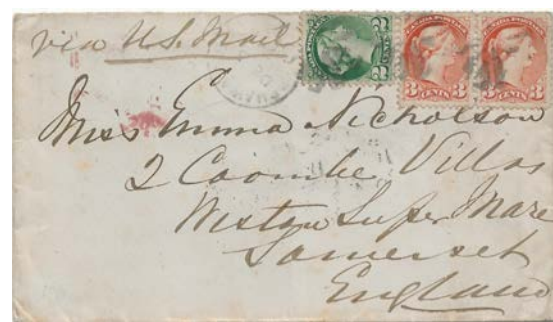 via U.S. Mail
2 CENTS 2
3 CENTS 3
3 CENTS 3
Miss Emma Nicholson
2 Coombe Villas
Weston Super Mare
Somerset
England